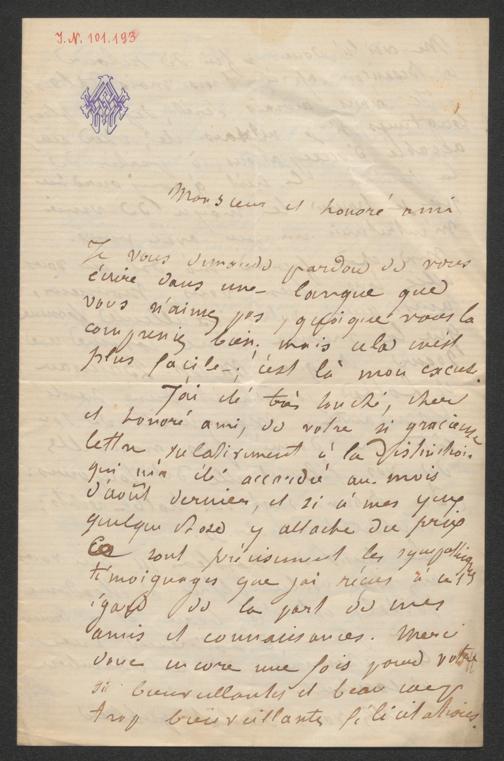 I.N. 101.193
Monsieur et honoré ami
Je vous demande pardon de vous
écrire dans une langue que
vous n'aimez pas, quoique vous la
compreniez bien. mais cela m'est
plus facile; c'est là mon excuse.
J'ai été très touché, cher
et honoré ami, de votre si gracieuse
lettre relativement à la distinction
qui m'a été accordée au mois
d'août dernier, et si à mes yeux
quelque chose y attache du prix
ce sont précisément les sympathiques
témoignages que j'ai reçus à cet
égard de la part de mes
amis et connaissances. Merci
donc encore une fois pour votre
si bienveillantes et beaucoup
trop bienveillantes félicitations.